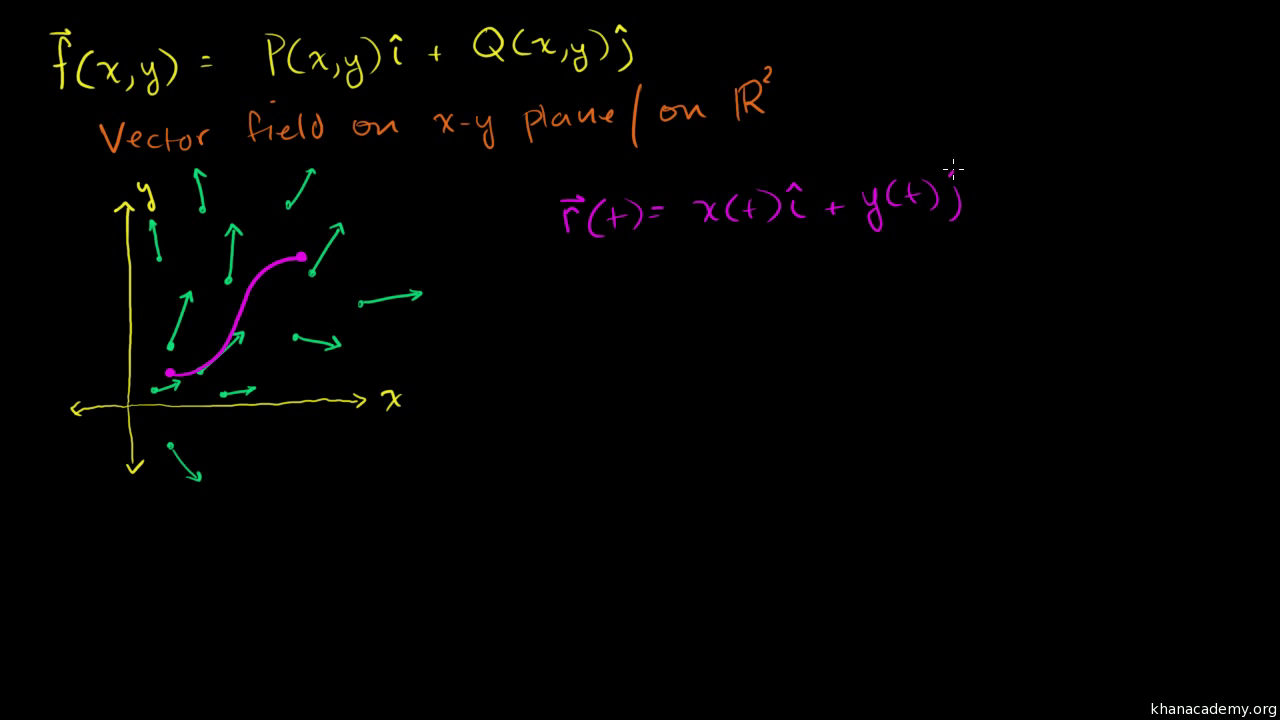 f⃗(x,y) = P(x,y)î + Q(x,y)ĵ
Vector field on x-y plane/on ℝ²
y
r⃗(t) = x(t)î + y(t)ĵ
x
khanacademy.org